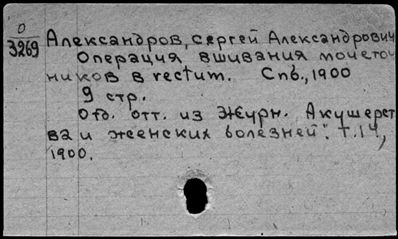 О
3269
Александров, Сергей Александрович
Операция вшивания мочеточ
ников в rectum. Спб., 1900
9 стр.
Отд. отт. из Журн. Акушерст
ва и женских болезней". т. 14,
1900.